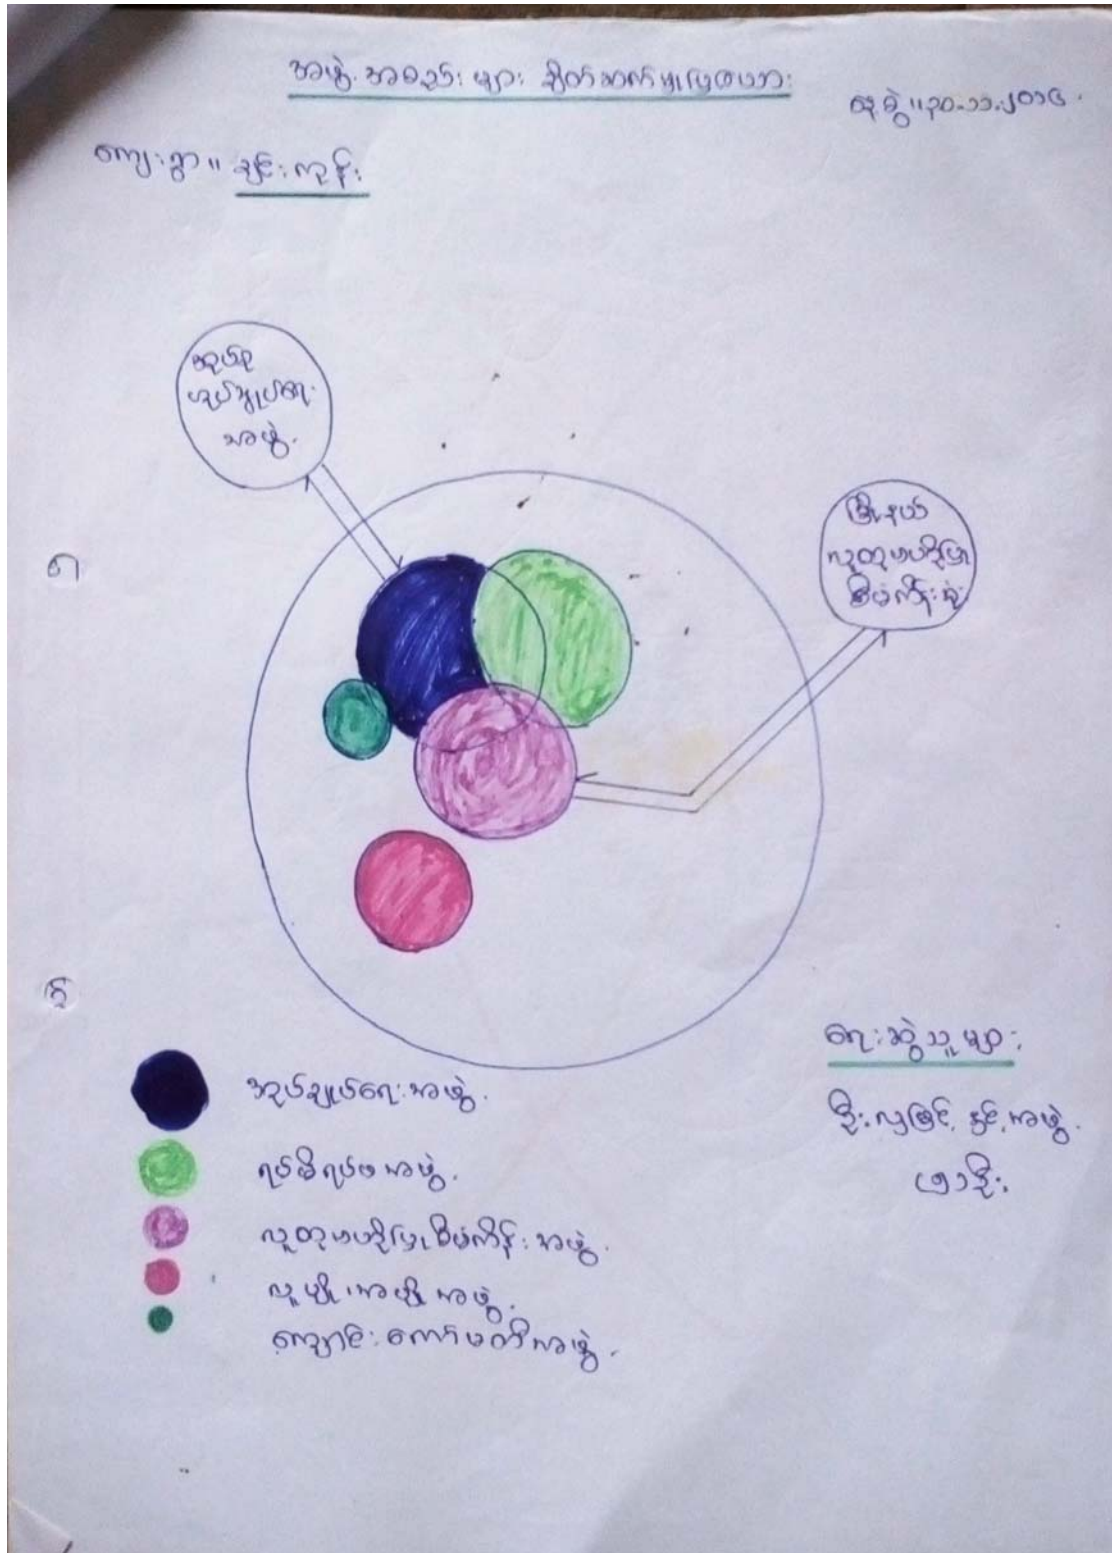 အဖွဲ့အစည်းများ ချိတ်ဆက်မှုပြဇယား
နေ့စွဲ။ ၃၀-၁၁-၂၀၁၄
ကျေးရွာ။ ချင်းကုန်း
အုပ်စု
အုပ်ချုပ်ရေး
အဖွဲ့
မြို့နယ်
လူထုဗဟိုပြု
စီမံကိန်းရုံး
အုပ်ချုပ်ရေးအဖွဲ့
ရပ်မိရပ်ဖအဖွဲ့
လူထုဗဟိုပြုစီမံကိန်းအဖွဲ့
လူမျိုးအဖွဲ့
ကျောင်းကော်မတီအဖွဲ့
ရေးဆွဲသူများ
ဦးလှမြင့်နှင့်အဖွဲ့